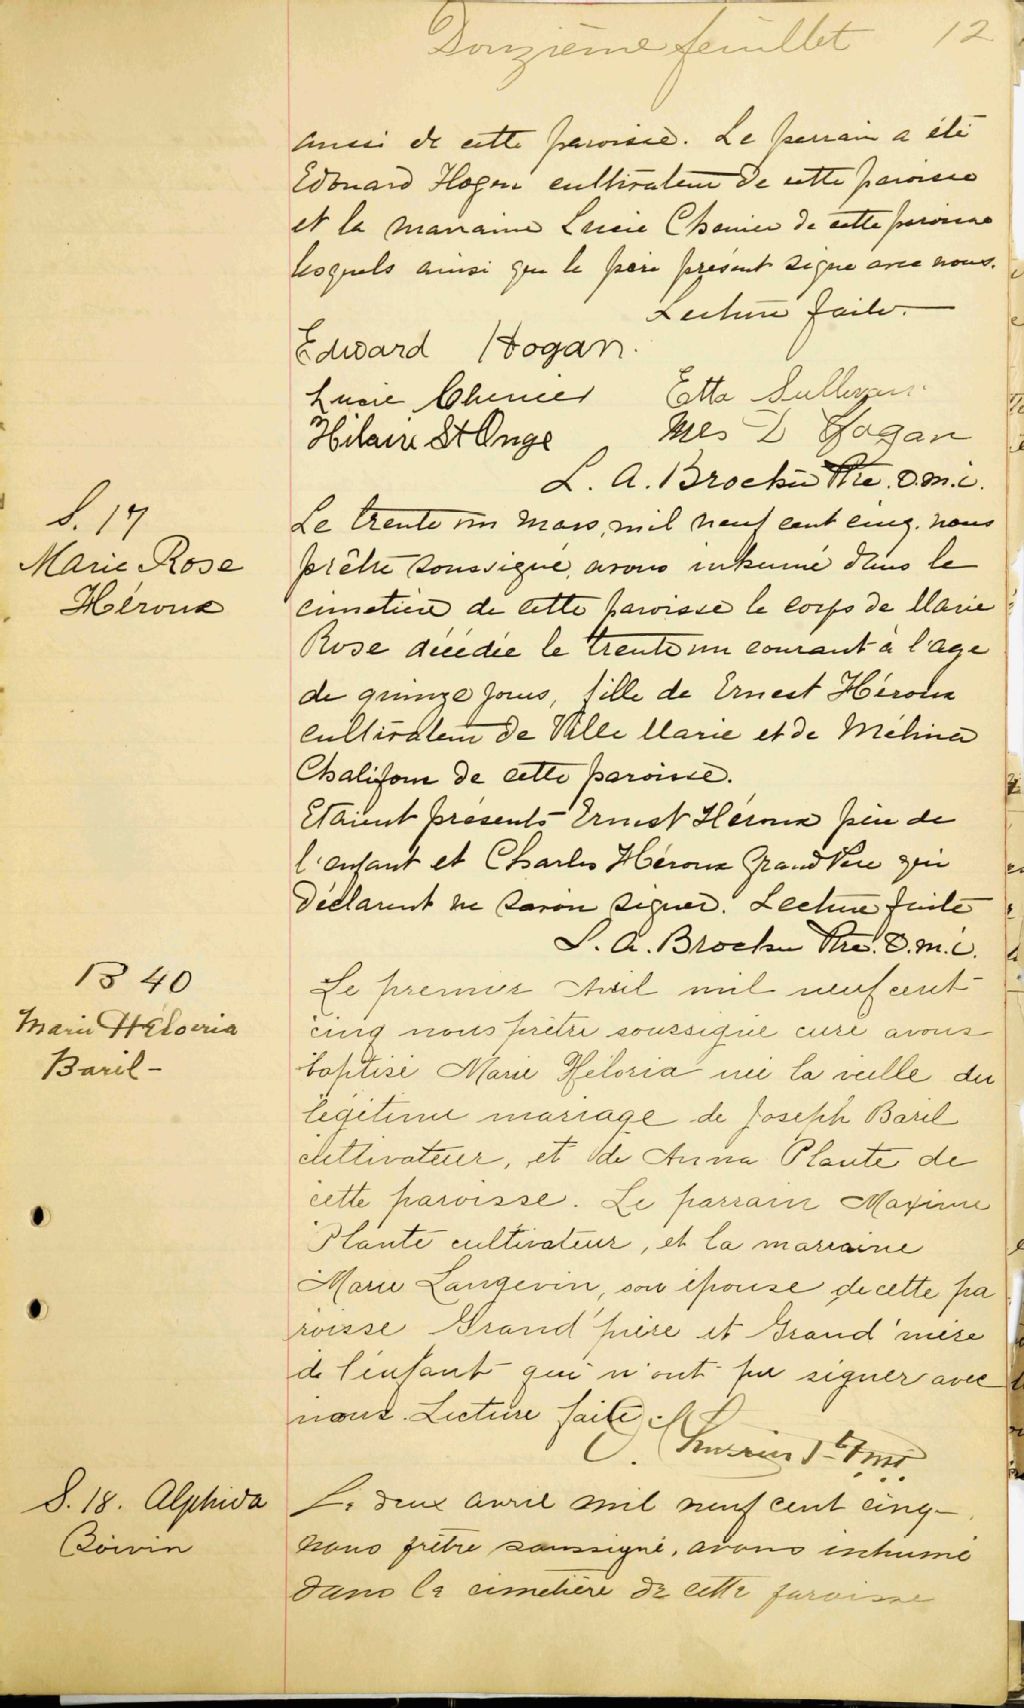 Douzième feuillet 12
aussi de cette paroisse. Le parrain a été
Edouard Hogan cultivateur de cette paroisse
et la marraine Lucie Chenier de cette paroisse
lesquels ainsi que le père présent signe avec nous.
Lecture faite.
Edward Hogan.
Lucie Chenier Etta Sullivan
Hilaire St Onge Mrs D Hogan
L. A. Brochu Ptre. O.m.i.
S. 17
Marie Rose
Héroux
Le trente un mars, mil neuf cent cinq. nous
prêtre soussigné, avons inhumé dans le
cimetière de cette paroisse le corps de Marie
Rose décédée le trente un courant à l'age
de quinze jours, fille de Ernest Héroux
cultivateur de Ville Marie et de Mélina
Chalifour de cette paroisse.
Etaient présents Ernest Héroux père de
l'enfant et Charles Héroux Grand Père qui
déclarent ne savoir signer. Lecture faite
L. A. Brochu Ptre. O.m.i.
B 40
Marie Héloria
Baril -
Le premier Avril mil neuf cent
cinq nous prêtre soussigné curé avons
baptisé Marie Héloria née la veille du
légitime mariage de Joseph Baril
cultivateur, et de Anna Plante de
cette paroisse. Le parrain Maxime
Plante cultivateur, et la marraine
Marie Langevin, son épouse de cette pa
roisse Grand'père et Grand'mère
de l'enfant qui n'ont pu signer avec
nous. Lecture faite.
S. 18. Alphida
Boivin
Le deux avril mil neuf cent cinq
nous prêtre soussigné, avons inhumé
dans le cimetière de cette paroisse